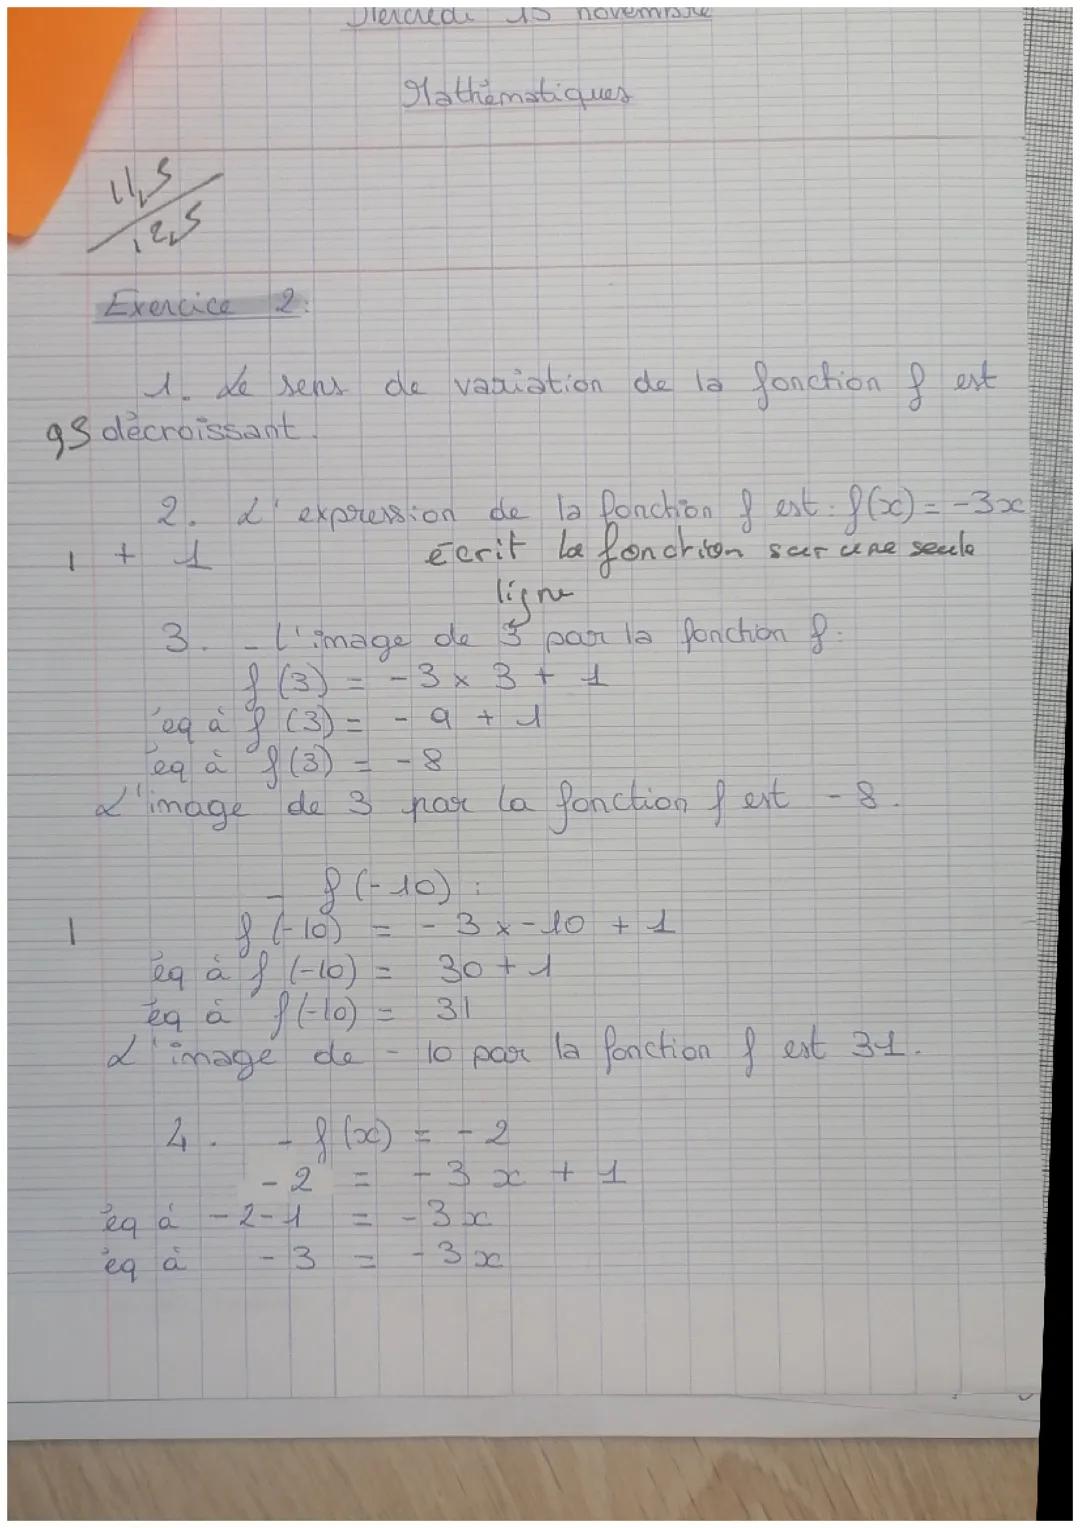 Mercredi 15 novembre
Mathématiques
11,5
12,5
Exercice 2:
1. Le sens de variation de la fonction f est
0,5 décroissant.
2. L'expression de la fonction f est : f(x) = -3x
1 + 1 écrit la fonction sur une seule
ligne
3. - L'image de 3 par la fonction f:
f(3) = -3 x 3 + 1
éq à f(3) = - 9 + 1
éq à f(3) = - 8
L'image de 3 par la fonction f est - 8.
- f(-10) :
1 f(-10) = - 3 x -10 + 1
éq à f(-10) = 30 + 1
éq à f(-10) = 31
L'image de - 10 par la fonction f est 31.
4. - f(x) = - 2
- 2 = - 3 x + 1
éq à - 2 - 1 = - 3 x
éq à - 3 = - 3 x